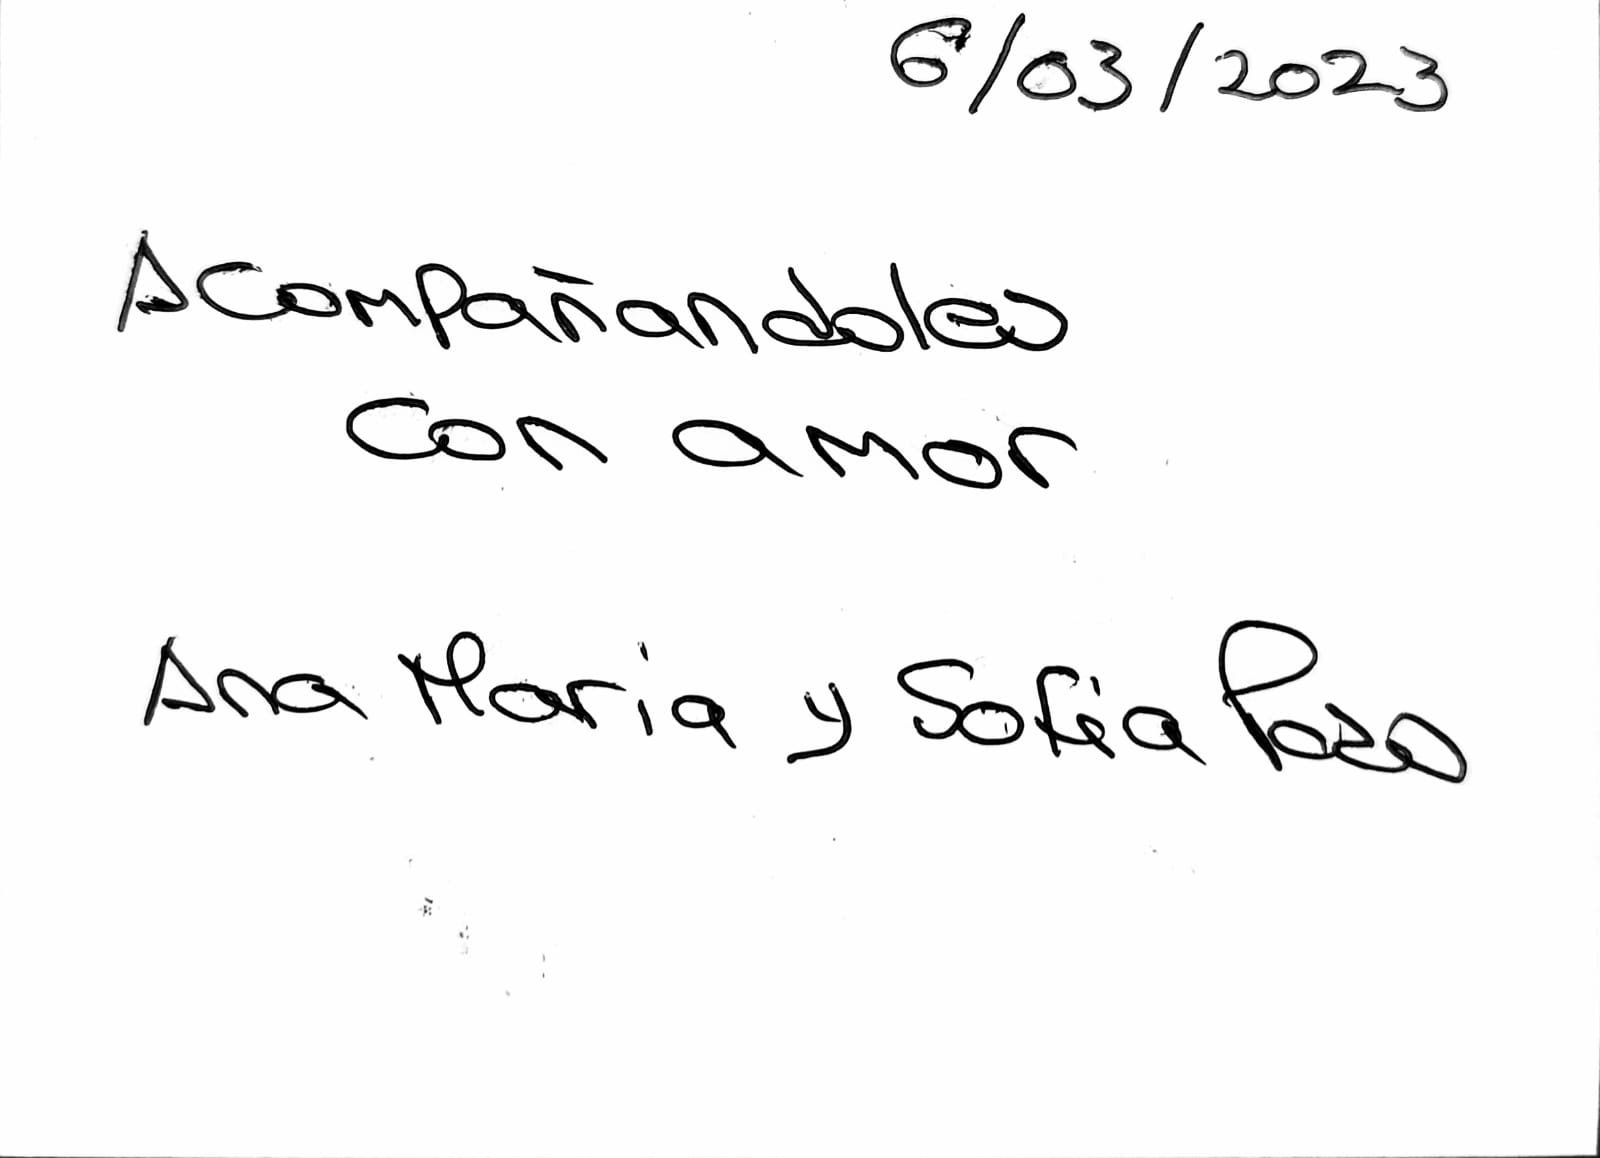 6/03/2023
Acompañandoles
con amor
Ana Maria y Sofia Pozo